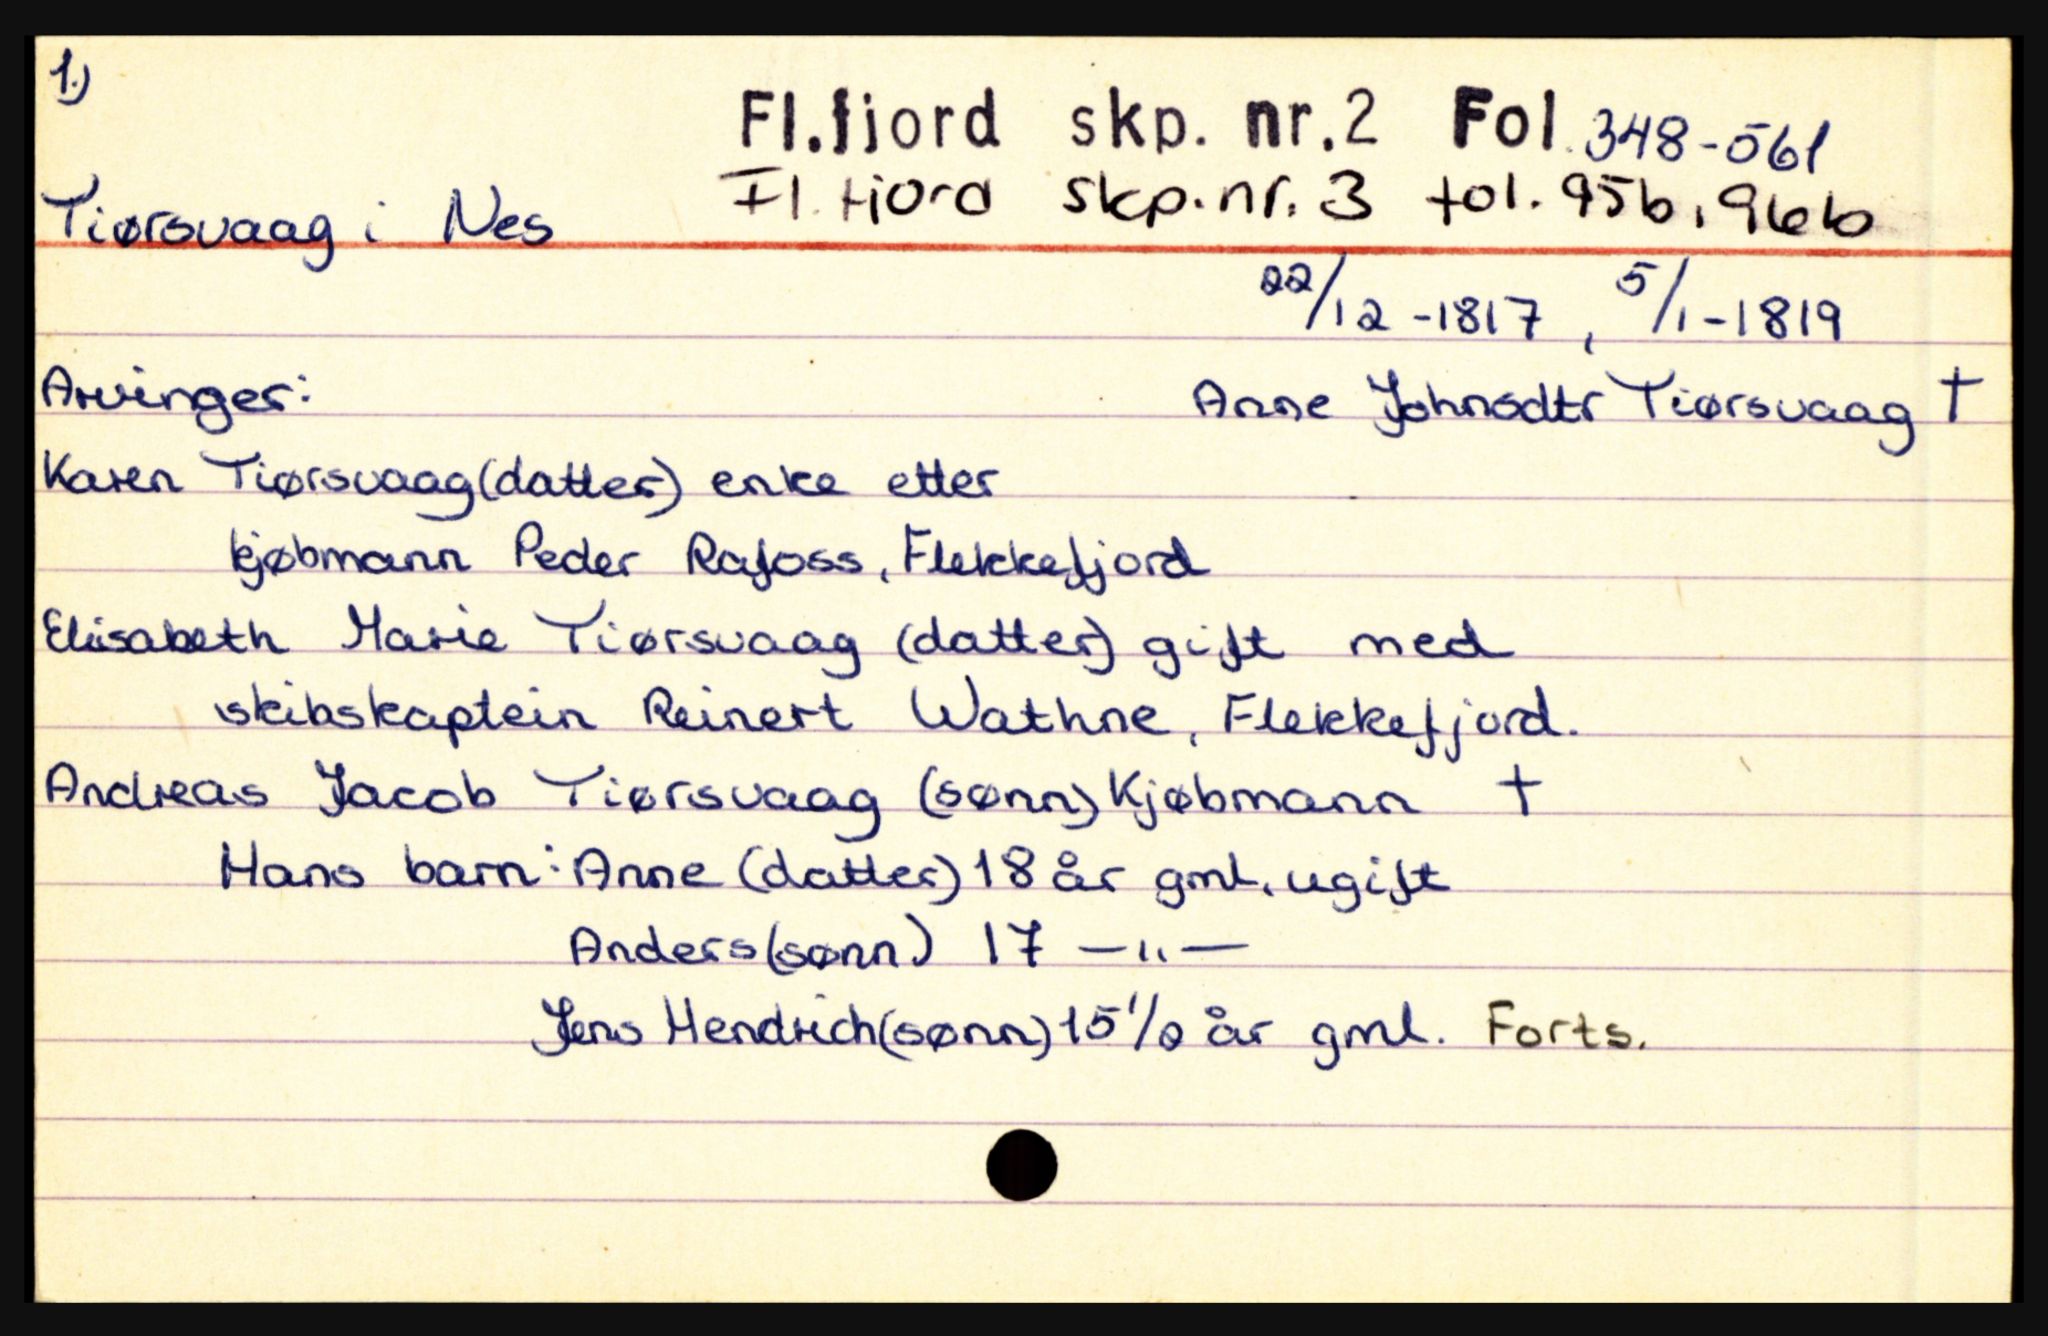 1.)
Fl.fjord skp. nr.2 Fol. 348-561
Fl.fjord skp.nr.3 fol.95b,96b
Tiørsvaag i Nes
22/12-1817, 5/1-1819
Arvinger: Anne Johnsdtr Tiørsvaag †
Karen Tiørsvaag (datter) enke etter
kjøbmann Peder Rafoss, Flekkefjord
Elisabeth Marie Tiørsvaag (datter) gift med
skibskaptein Reinert Wathne, Flekkefjord.
Andreas Jacob Tiørsvaag (sønn) Kjøbmann †
Hans barn: Anne (datter) 18 år gml. ugift
Anders (sønn) 17 —"—
Jens Hendrich (sønn) 15 1/2 år gml. Forts.